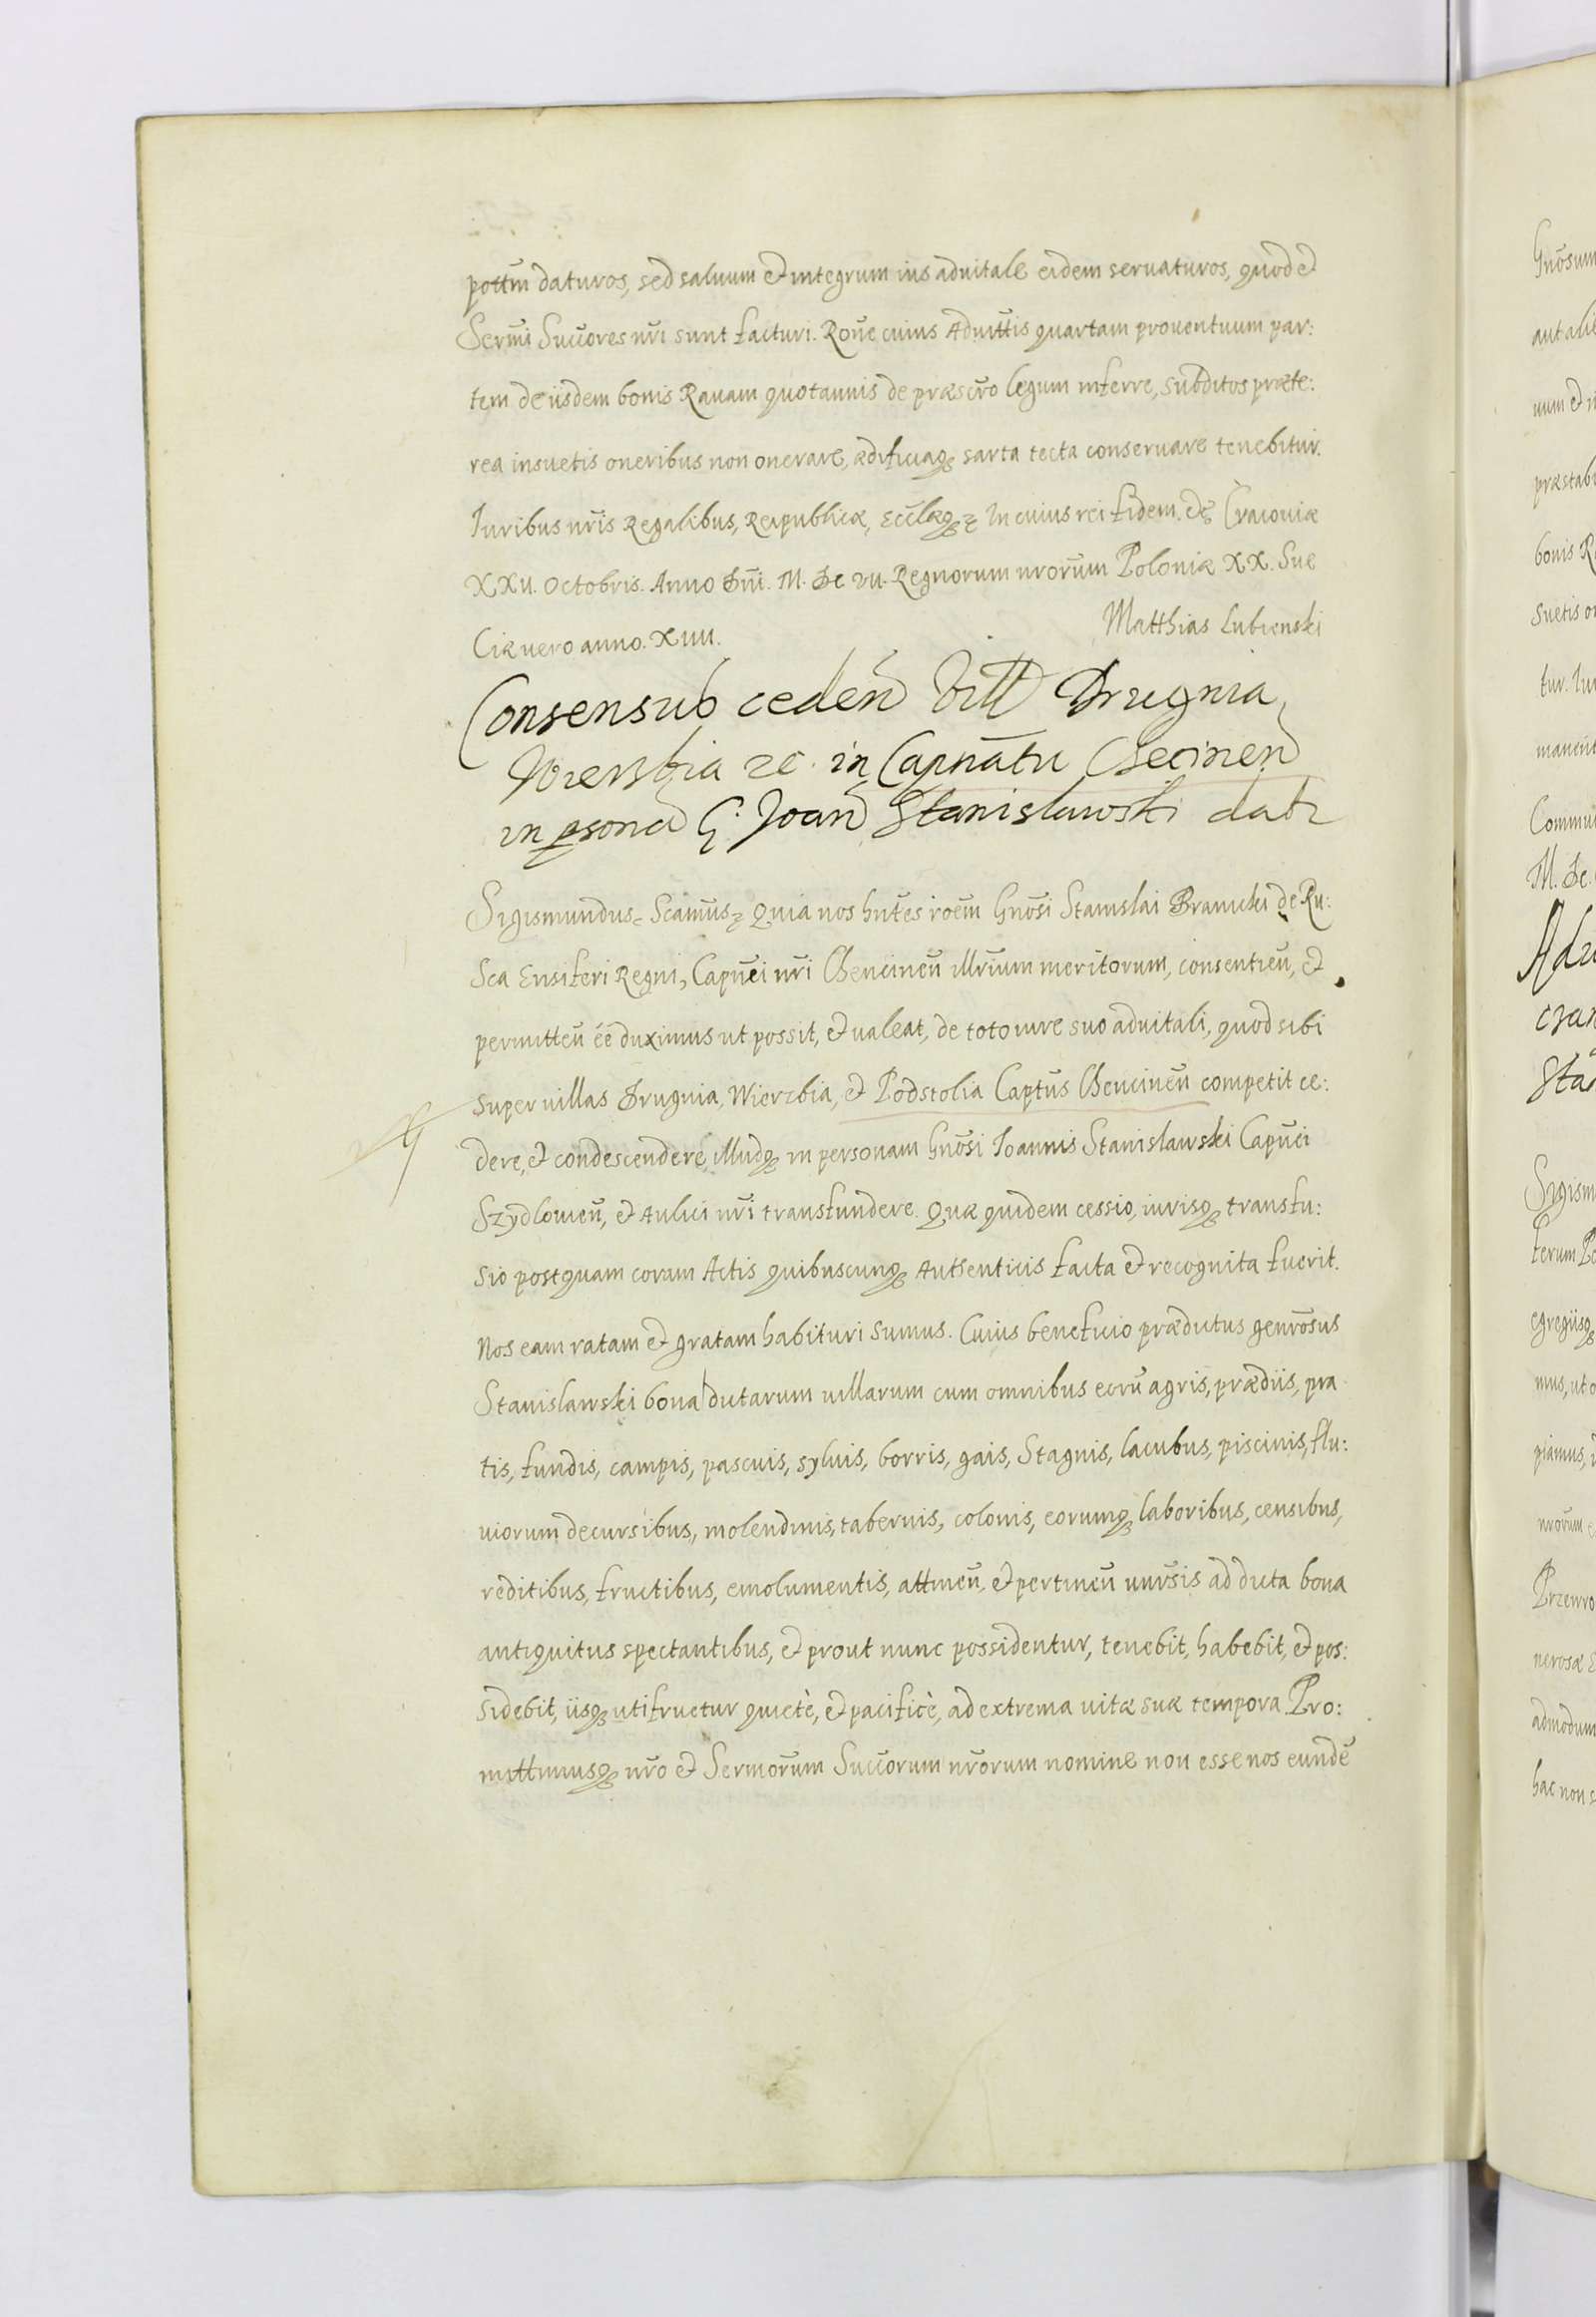 pottm̃ daturos, sed saluum et integrum ius aduitale eidem seruaturos, quod et
Serm̃i Succores nr̃i sunt facturi. Rõne cuius Aduittis quartam prouentuum par:
tem de iisdem bonis Rauam quotannis de præscr̃o legum inferre, subditos præte:
rea insuetis oneribus non onerare, ædificiaq; sarta tecta conseruare tenebitur.
Iuribus nr̃is Regalibus, Reipublicæ, Eccl̃æq; In cuius rei fidem. etc̃ Cracouiæ
XXV. Octobris. Anno Dñi. M. Dc VII. Regnorum nrorũm Poloniæ XX. Sue
Ciæ uero anno. XIIII.
Matthias Lubienski
Consensus ceden Vill Drugnia,
Wierzbia etc. in Capnãtu Checinen
in psona G. Joan Stanislawski datr
Sigismundus. Scamũs. Quia nos hñtes rõem Gnõsi Stanislai Branicki de Ru:
Sca Ensiferi Regni, Capnẽi nr̃i Chencineñ illrĩum meritorum, consentieñ, et
permitteñ éẽ duximus ut possit, et ualeat, de toto iure suo aduitali, quod sibi
super uillas Drugnia, Wierzbia, et Podstolia Captũs Chencineñ competit ce:
dere, et condescendere, illudq; in personam Gnõsi Ioannis Stanislawski Capnẽi
Szydlouieñ, et Aulici nr̃i transfundere. Quæ quidem cessio, iurisq; transfu:
sio postquam coram Actis quibuscunq; Authenticis facta et recognita fuerit.
Nos eam ratam et gratam habituri sumus. Cuius beneficio prædictus genrõsus
Stanislawski bona dictarum uillarum cum omnibus eorũ agris, prædiis, pra
tis, fundis, campis, pascuis, syluis, borris, gais, Stagnis, lacubus, piscinis, flu:
uiorum decursibus, molendinis, tabernis, colonis, eorumq; laboribus, censibus,
reditibus, fructibus, emolumentis, attineñ, et pertineñ unr̃sis ad dicta bona
antiquitus spectantibus, et prout nunc possidentur, tenebit, habebit, et pos:
sidebit, iisq; utifruetur quietè, et pacificè, ad extrema uitæ suæ tempora Pro:
mittimusq; nr̃o et Sermorũm Succorum nrõrum nomine non esse nos eundẽ